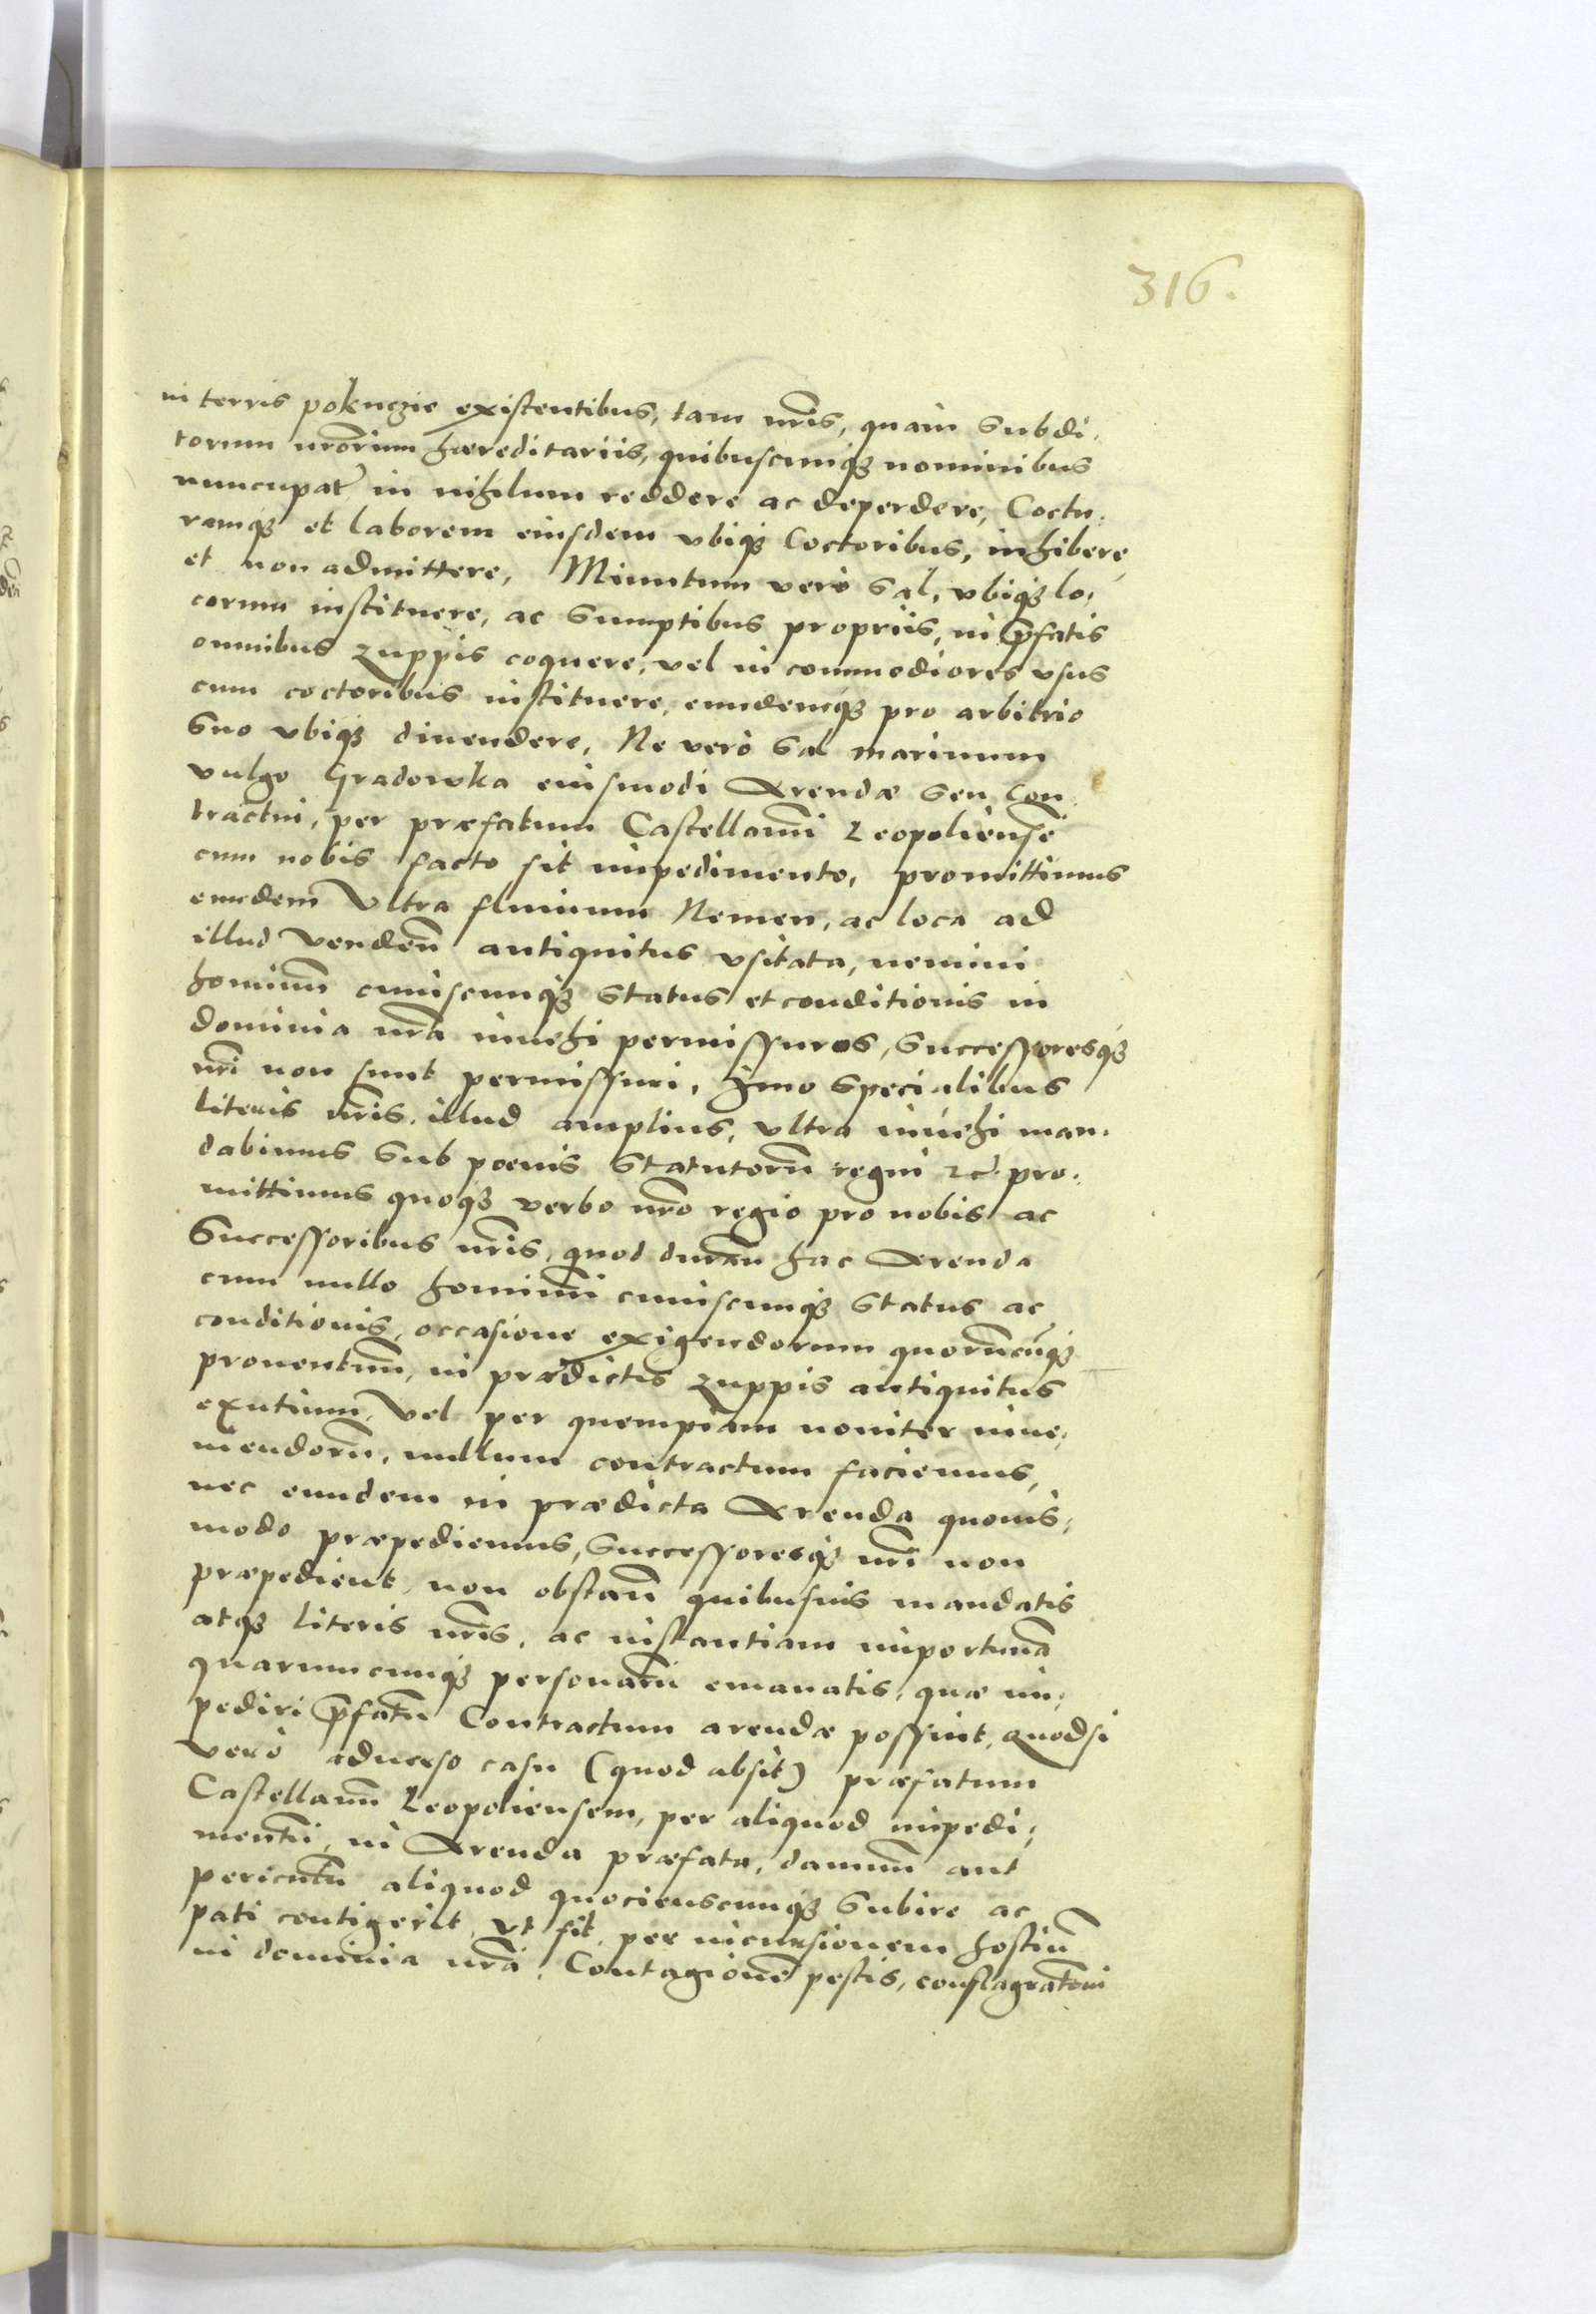 316.
in terris pokuczie existentibus, tam nr̃is, quàm subdi,
torum nr̃orum hæreditariis, quibuscumq3 nominibus
nuncupat̃ in nihilum reddere ac deperdere, Coctu,
ramq3 et laborem eiusdem vbiq3 Coctoribus, inhibere,
et non admittere, Minutum verò sal, vbiq3 lo,
corum instituere, ac sumptibus propriis, in p̃fatis
omnibus zuppis coquere, vel in commodiores vsus
cum coctoribus instituere, eundemq3 pro arbitrio
suo vbiq3 diuendere, Ne verò sal marinum
vulgo Gradowka eiusmodi Arendæ seu Con,
tractui, per præfatum Castellanũ Leopoliensẽ
cum nobis facto sit impedimento, promittimus
eundem Vltra fluuium Nemen, ac loca ad
illud venden̄ antiquitus vsitata, nemini
hominũ cuiuscumq3 status et conditionis in
dominia nr̃a inuehi permissuros, Successoresq3
nr̃i non sunt permissuri, Imo specialibus
literis nr̃is, illud amplius, vltra inuehi man,
dabimus sub poenis statutorũ regni etc. pro,
mittimus quoq3 verbo nr̃o regio pro nobis ac
Successoribus nr̃is, quod durañ hac Arenda
cum nullo hominũ cuiuscumq3 status ac
conditionis, occasione exigendorum quorũcũq3
prouentuum, in prædictis zuppis antiquitus
exutium, Vel per quempiam nouiter inue,
niendorũ, nullum contractum faciemus,
nec eundem in prædicta Arenda quouis,
modo præpediemus, Successoresq3 nr̃i non
præpedient, non obstañ quibusuis mandatis
atq3 literis nr̃is, ac instantiam importunã
quarumcumq3 personarũ emanatis, quæ im,
pediri p̃fatũ Contractum arendæ possint, quodsi
verò aduerso casu (quod absit) præfatum
Castellanũ Leopoliensem, per aliquod impedi,
mentũ, in Arenda præfata, damnũ aut
periculũ aliquod quocienscumq3 subire ac
pati contigerit, Vt sit, per incursionem hostiũ
in dominia nr̃a, Contagionẽ pestis, conflagratõm